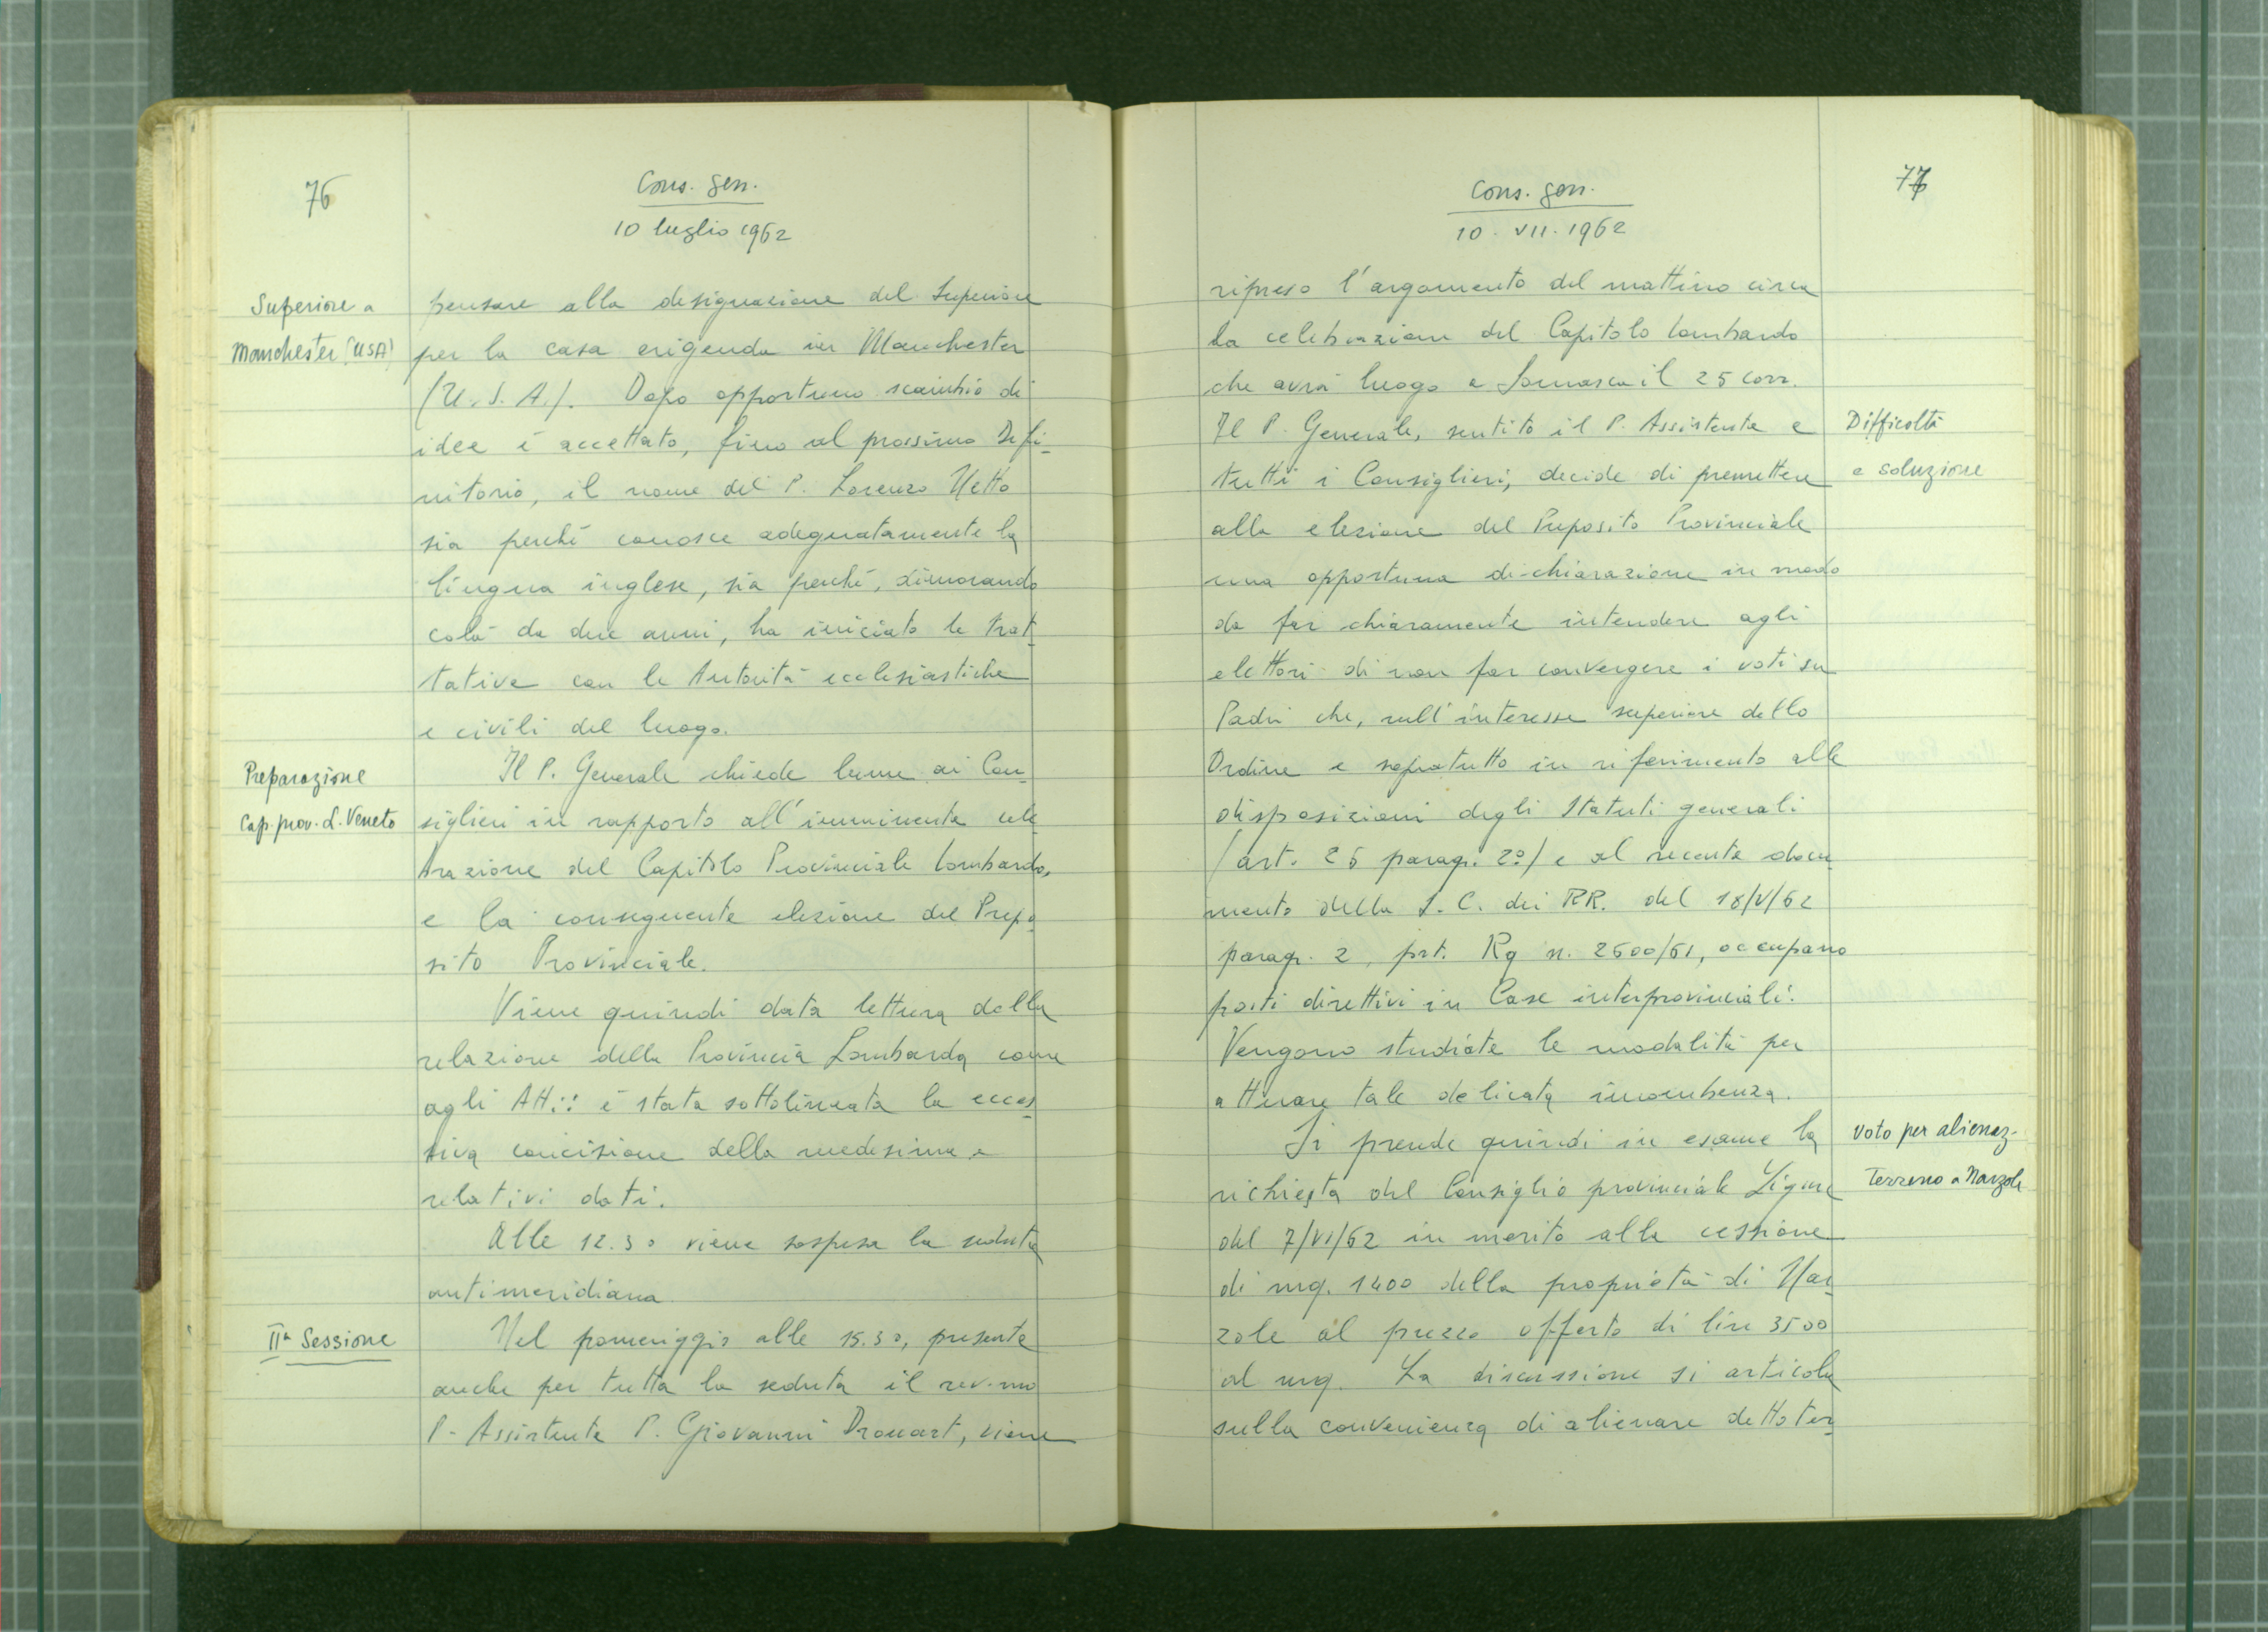 76
Cons. gen.
10 luglio 1962
Superiore a
Manchester (USA)
pensare alla designazione del Superiore
per la casa erigenda in Manchester
(U.S.A.). Dopo opportuno scambio di
idee è accettato, fino al prossimo Defi-
nitorio, il nome del P. Lorenzo Netto
sia perché conosce adeguatamente la
lingua inglese, sia perché, dimorando
colà da due anni, ha iniciato le trat-
tative con le Autorità ecclesiastiche
e civili del luogo.
Preparazione
Cap. prov. L. Veneto
Il P. Generale chiede lume ai Con-
siglieri in rapporto all'imminente cele-
brazione del Capitolo Provinciale lombardo,
e la conseguente elezione del Prepo-
sito Provinciale.
Viene quindi data lettura della
relazione della Provincia Lombarda come
agli Atti: è stata sottolineata la ecces-
siva concisione della medesima e
relativi dati.
Alle 12.30 viene sospesa la seduta
antimeridiana
IIª Sessione
Nel pomeriggio alle 15.30, presente
anche per tutta la seduta il rev.mo
P. Assistente P. Giovanni Drouart, viene
77
Cons. gen.
10. VII. 1962
ripreso l'argomento del mattino circa
la celebrazione del Capitolo lombardo
che avrà luogo a Somasca il 25 corr.
Difficoltà
e soluzione
Il P. Generale, sentito il P. Assistente e
tutti i Consiglieri, decide di premettere
alla elezione del Preposito Provinciale
una opportuna dichiarazione in modo
da far chiaramente intendere agli
elettori di non far convergere i voti su
Padri che, nell'interesse superiore dello
Ordine e sopratutto in riferimento alle
disposizioni degli Statuti generali
(art. 25 paragr. 2º) e al recente docu-
mento della S. C. dei RR. del 18/V/62
paragr. 2, prt. Rg n. 2600/61, occupano
posti direttivi in Case interprovinciali.
Vengono studiate le modalità per
attuare tale delicata incombenza.
Voto per alienaz.
Terreno a Narzole
Si prende quindi in esame la
richiesta del Consiglio provinciale Ligure
del 7/VI/62 in merito alla cessione
di mq. 1400 della proprietà di Nar-
zole al prezzo offerto di lire 3500
al mq. La discussione si articola
sulla convenienza di alienare detto ter-